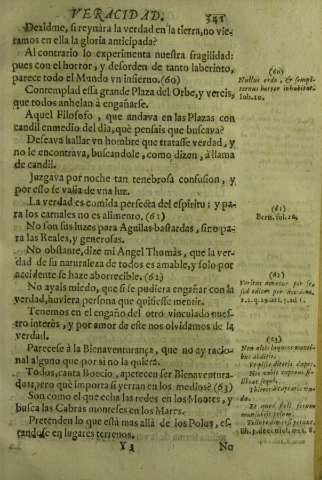 VERACIDAD. 341
Dezidme, si reynàra la verdad en la tierra, no vie-
ramos en ella la gloria anticipada?
Al contrario lo experimenta nuestra fragilidad:
pues con el horror, y desorden de tanto laberinto,
parece todo el Mundo vn infierno. (60)
Contemplad essa grande Plaza del Orbe, y vereis,
que todos anhelan à engañarse.
Aquel Filosofo, que andava en las Plazas con
candil enmedio del dia, què pensais que buscava?
Deseava hallar vn hombre que tratasse verdad, y
no le encontrava, buscandole, como dizen, à llama
de candil.
Juzgava por noche tan tenebrosa confusion, y
por esso se valia de vna luz.
La verdad es comida perfecta del espiritu; y pa-
ra los carnales no es alimento. (61)
No son sus luzes para Aguilas bastardas, sino pa-
ra las Reales, y generosas.
No obstante, dize mi Angel Thomàs, que la ver-
dad de su naturaleza de todos es amable, y solo por
accidente se haze aborrecible. (62)
No ayais miedo, que si se pudiera engañar con la
verdad, huviera persona que quisiesse mentir.
Tenemos en el engaño del otro vinculado nues-
tro interès, y por amor de este nos olvidamos de la
verdad.
Parecese à la Bienaventurança, que no ay racio-
nal alguno que por sì no la quiera.
Todos, canta Boecio, apetecen ser Bienaventura-
dos; pero què importa si yerran en los medios? (63)
Son como el que echa las redes en los Montes, y
busca las Cabras monteses en los Mares.
Pretenden lo que està mas allà de los Polos, es-
tandose en lugares terrenos.
Y 3 No
(60)
Nullus ordo, & sempi-
ternus horror inhabitat.
Iob. 10.
(61)
Bern.
(62)
Veritas
(63)